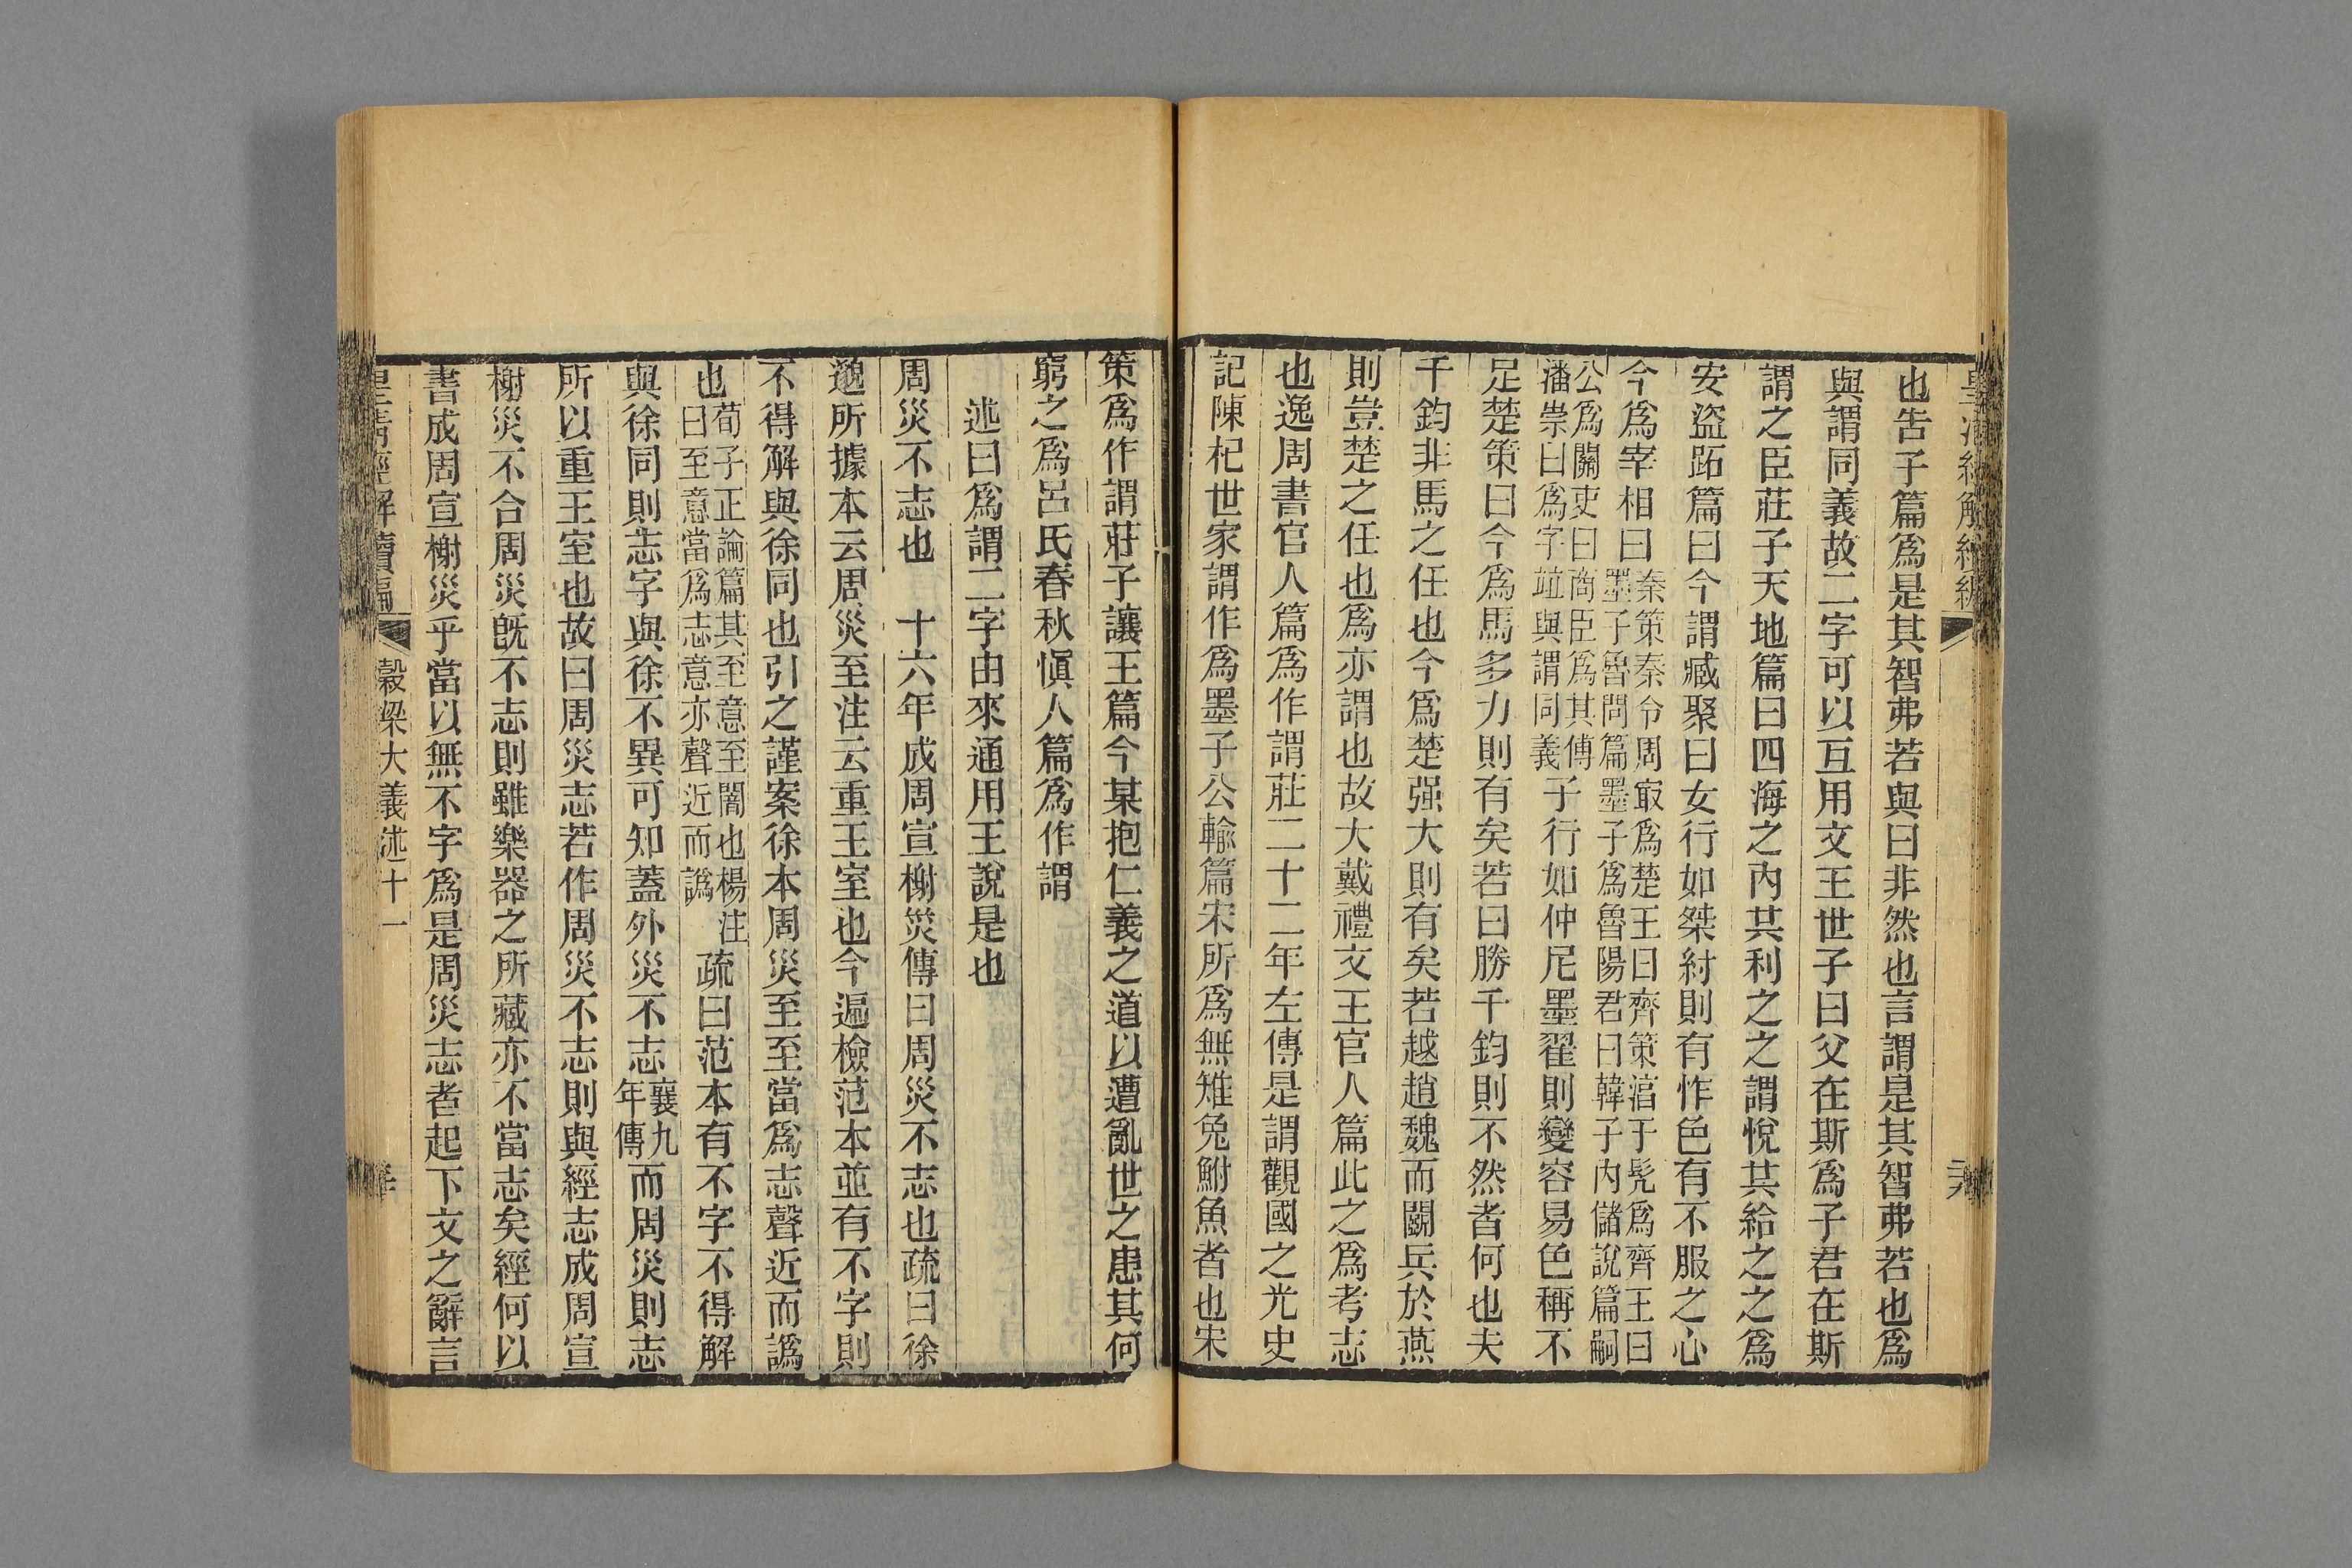 也告子篇爲是其智弗若與曰非然也言謂是其智弗若也爲
與謂同義故二字可以互用文王世子曰父在斯爲子君在斯
謂之臣莊子天地篇曰四海之內其利之之謂悅其給之之爲
安盜跖篇曰今謂臧聚曰女行如桀紂則有怍色有不服之心
今爲宰相曰
秦策秦令周㝡爲楚王曰齊策淳于髠爲齊王曰
墨子魯問篇墨子爲魯陽君曰韓子內儲說篇嗣
公爲關吏曰商臣爲其傅
潘崇曰爲字竝與謂同義
子行如仲尼墨翟則變容易色稱不
足楚策曰今爲馬多力則有矣若曰勝千鈞則不然者何也夫
千鈞非馬之任也今爲楚强大則有矣若越趙魏而鬭兵於燕
則豈楚之任也爲亦謂也故大戴禮文王官人篇此之爲考志
也逸周書官人篇爲作謂莊二十二年左傳是謂觀國之光史
記陳杞世家謂作爲墨子公輸篇宋所爲無雉兔鮒魚者也宋
策爲作謂莊子讓王篇今某抱仁義之道以遭亂世之患其何
窮之爲呂氏春秋愼人篇爲作謂
述曰爲謂二字由來通用王說是也
周災不志也　十六年成周宣榭災傳曰周災不志也疏曰徐
邈所據本云周災至注云重王室也今遍檢范本並有不字則
不得解與徐同也引之謹案徐本周災至至當爲志聲近而譌
也
荀子正論篇其至意至闇也楊注
曰至意當爲志意亦聲近而譌
疏曰范本有不字不得解
與徐同則志字與徐不異可知蓋外災不志
襄九
年傳
而周災則志
所以重王室也故曰周災志若作周災不志則與經志成周宣
榭災不合周災旣不志則雖樂器之所藏亦不當志矣經何以
書成周宣榭災乎當以無不字爲是周災志者起下文之辭言
皇淸經解續編
穀梁大義述十一